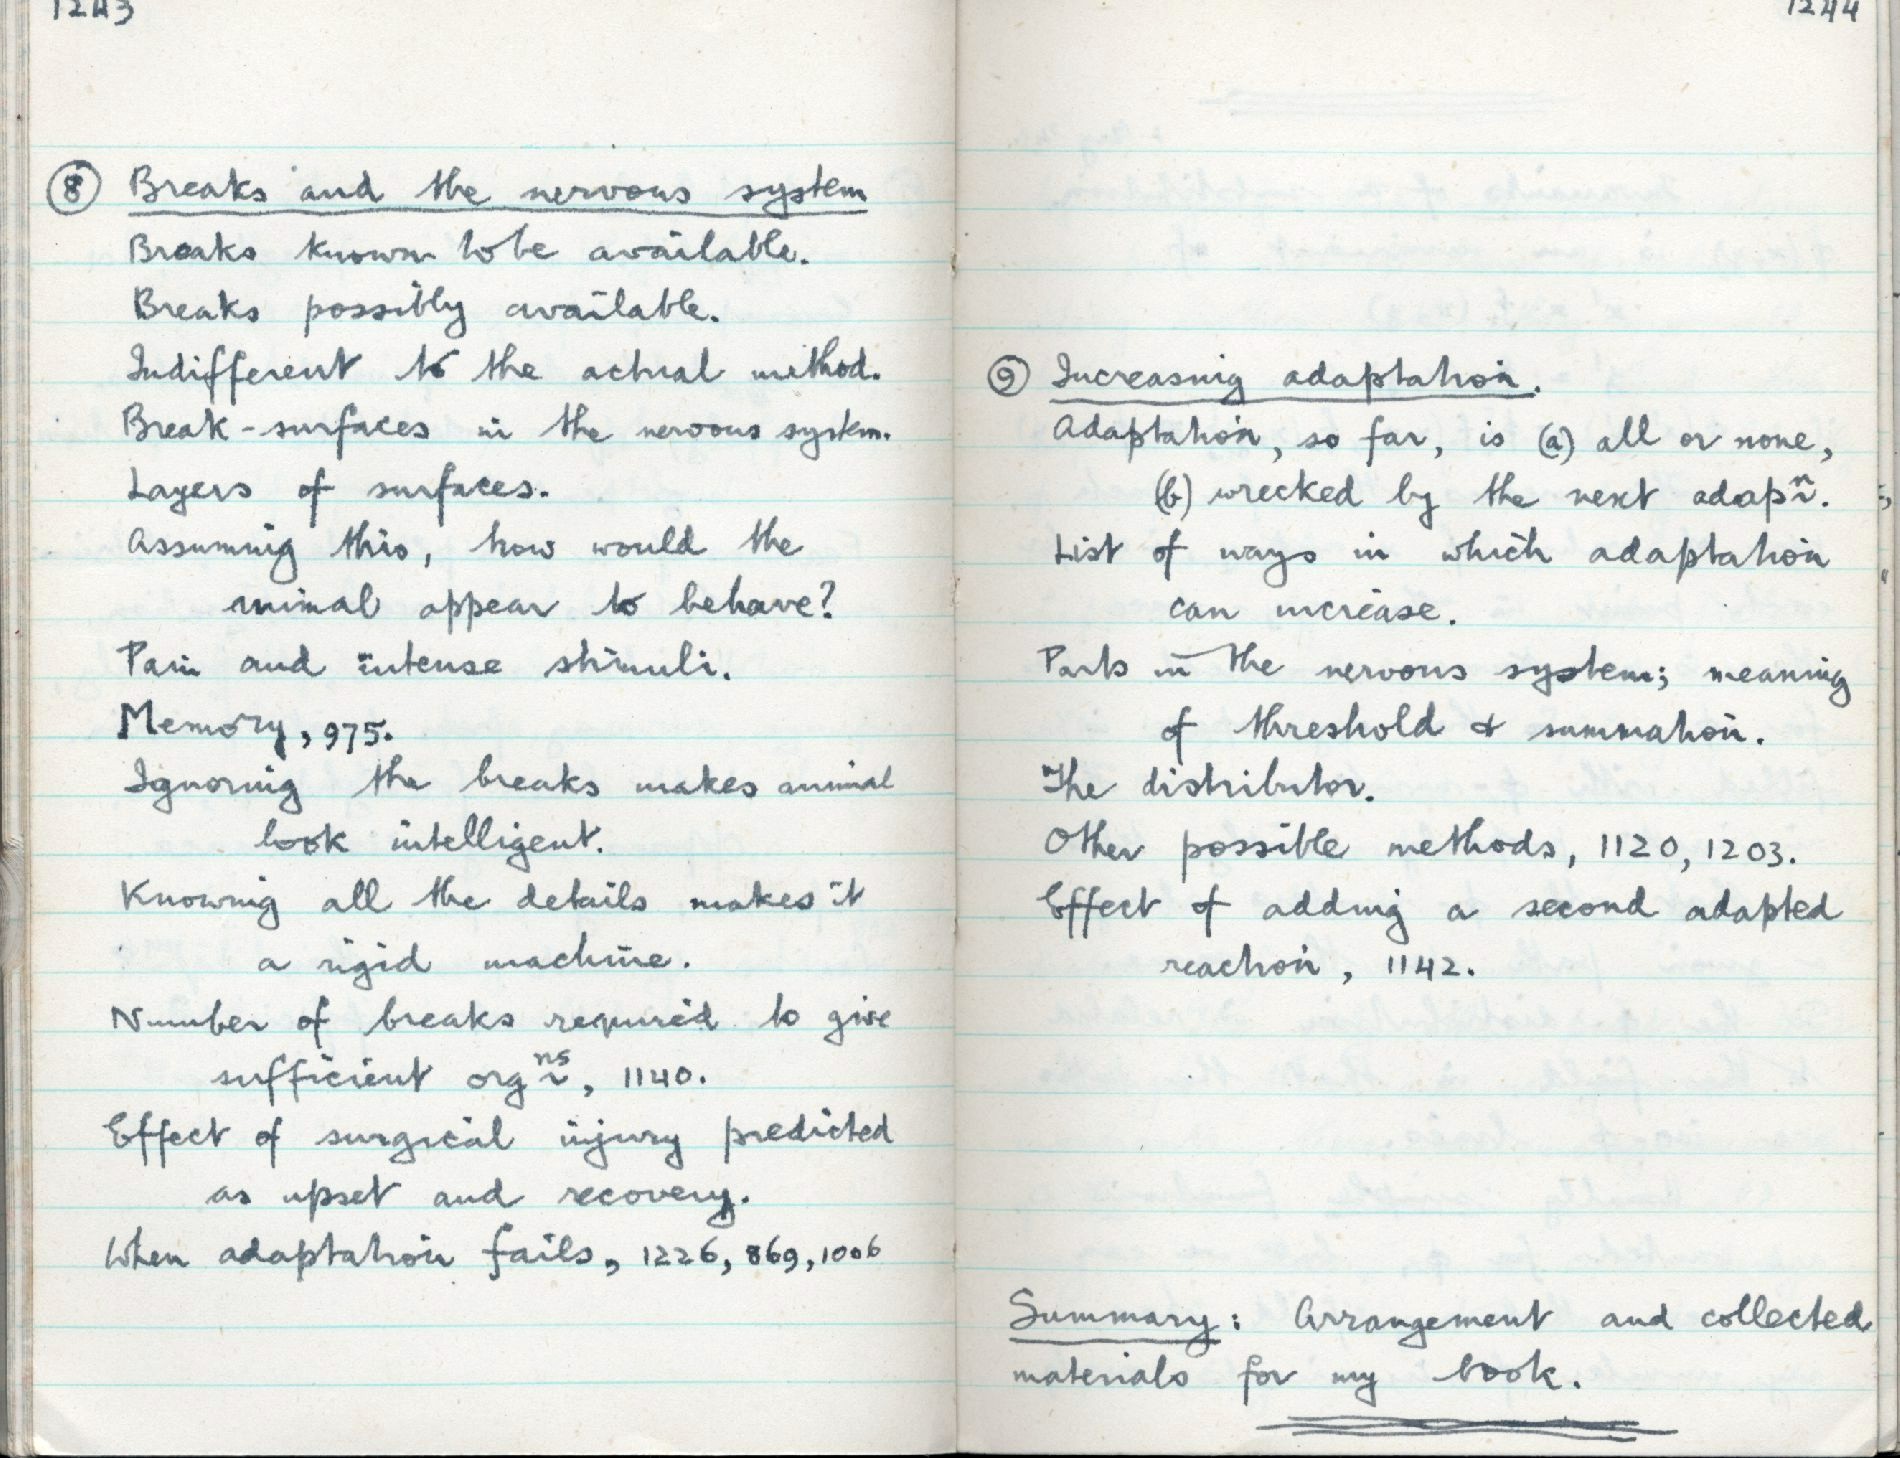 1243
⑧ Breaks and the nervous system
Breaks known to be available.
Breaks possibly available.
Indifferent to the actual method.
Break-surfaces in the nervous system.
Layers of surfaces.
Assuming this, how would the
animal appear to behave?
Pain and intense stimuli.
Memory, 975.
Ignoring the breaks makes animal
look intelligent.
Knowing all the details makes it
a rigid machine.
Number of breaks required to give
sufficient orgⁿˢ, 1140.
Effect of surgical injury predicted
as upset and recovery.
When adaptation fails, 1226, 869, 1006
1244
⑨ Increasing adaptation.
Adaptation, so far, is (a) all or none,
(b) wrecked by the next adapⁿ.
List of ways in which adaptation
can increase.
Parts in the nervous system; meaning
of threshold & summation.
The distributor.
Other possible methods, 1120, 1203.
Effect of adding a second adapted
reaction, 1142.
Summary: Arrangement and collected
materials for my book.